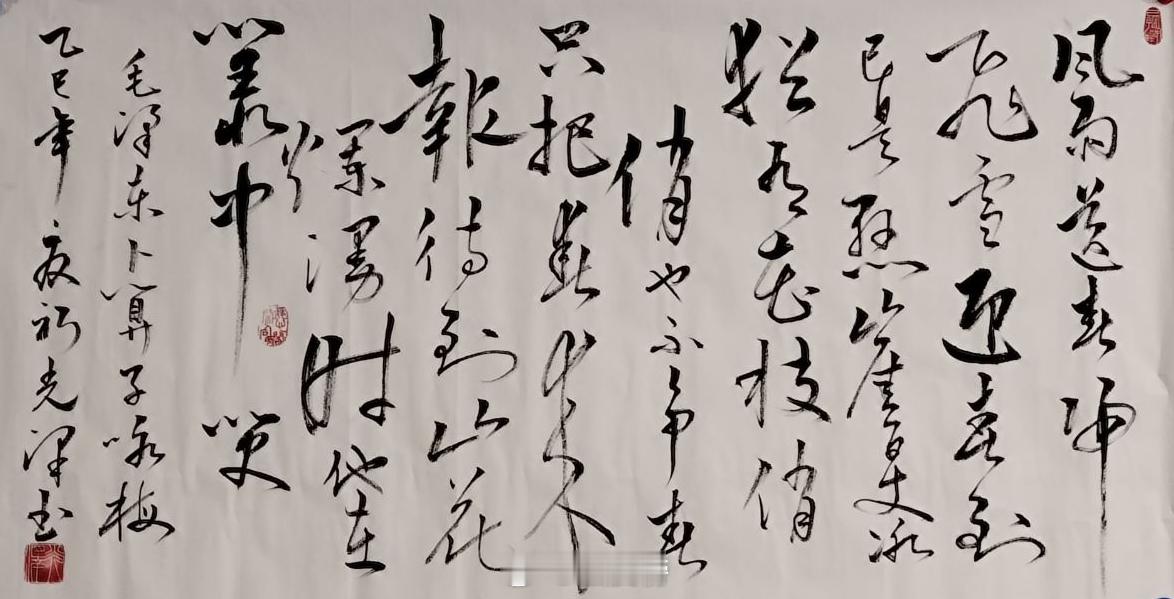 风雨送春归
飞雪迎春到
已是懸崖百丈冰
犹有花枝俏
俏也不争春
只把春来
報待到山花
爛漫时他在
叢中笑
毛泽东卜算子咏梅
乙巳年夏祁光泽书